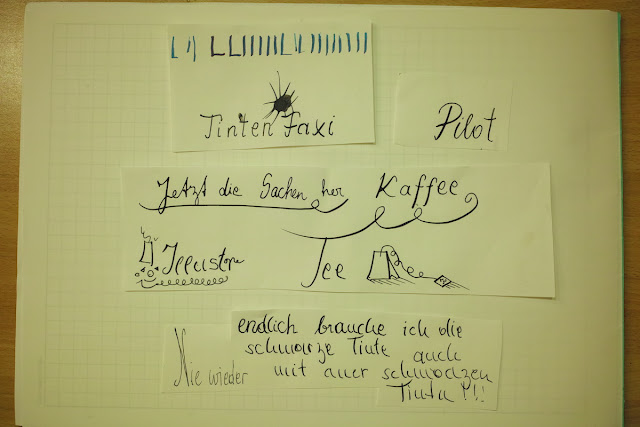 Tinten Faxi
Pilot
Jetzt die Sachen her Kaffee
Tee
Nie wieder
endlich brauche ich die
schwarze Tinte auch
mit auer schwarzen
Tinte!!!